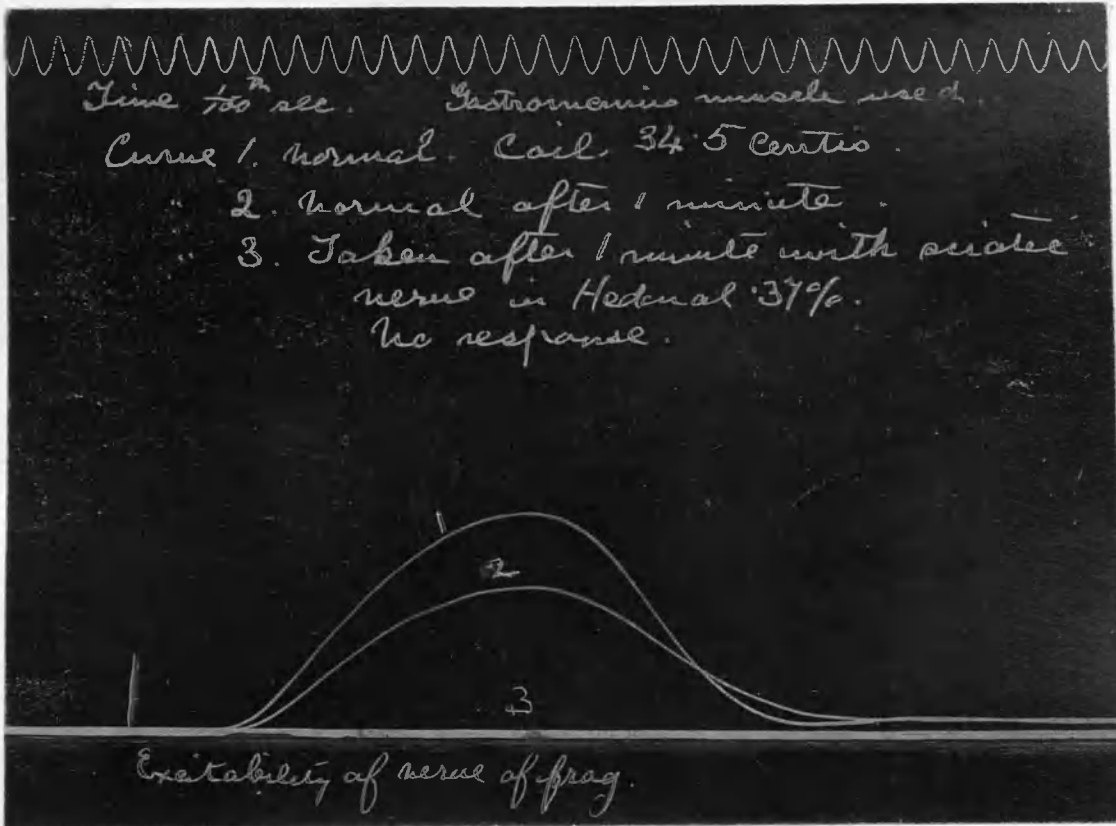 Time 1/100th sec. Gastrocnemius muscle used.
Curve 1. normal. Coil 34.5 Centis.
" 2. normal after 1 minute.
3. Taken after 1 minute with sciatic
nerve in Hedonal .37%.
No response.
1
2
3
Excitability of nerve of frog.